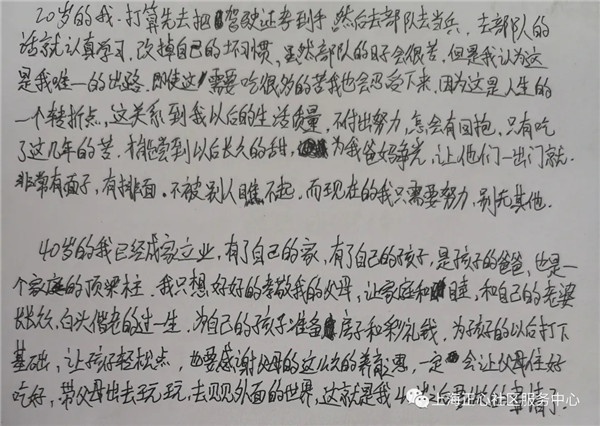 20岁的我.打算先去把驾驶证考到手 然后去部队去当兵，去部队的
话就认真学习，改掉自己的坏习惯，虽然部队的日子会很苦.但是我认为这
是我唯一的出路.即使这需要吃很多的苦我也会忍受下来，因为这是人生的
一个转折点，这关系到我以后的生活质量，不付出努力，怎会有回抱，只有吃
了这几年的苦.才能尝到以后长久的甜，为我爸妈争光，让他们一出门就
非常有面子，有排面.不被别人瞧不起，而现在的我只需要努力，别无其他.
40岁的我已经成家立业，有了自己的家，有了自己的孩子，是孩子的爸爸，也是一
个家庭的顶梁柱.我只想好好的孝敬我的父母，让家庭和睦，和自己的老婆
长长久久，白头偕老的过一生.为自己的孩子准备房子和彩礼钱，为孩子的以后打下
基础，让孩子轻松点，也要感谢父母的这么久的养育之恩，一定会让父母住好
吃好，带父母出去玩玩，去见见外面的世界，这就是我4
情了.
上海正心社区服务中心